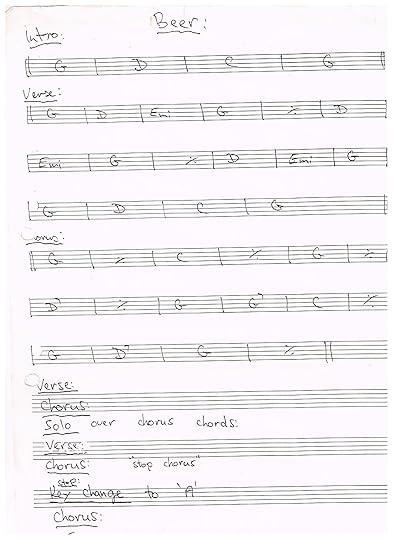 Beer:
Intro:
G | D | C | G
Verse:
G | D | Emi | G | ٪ | D
Emi | G | ٪ | D | Emi | G
G | D | C | G
Chorus:
G | ٪ | C | ٪ | G | ٪
D7 | ٪ | G | G7 | C | ٪
G | D7 | G | ٪ ||
Verse:
Chorus:
Solo over chorus chords:
Verse:
Chorus: "stop chorus"
stop:
Key change to 'A'
Chorus: